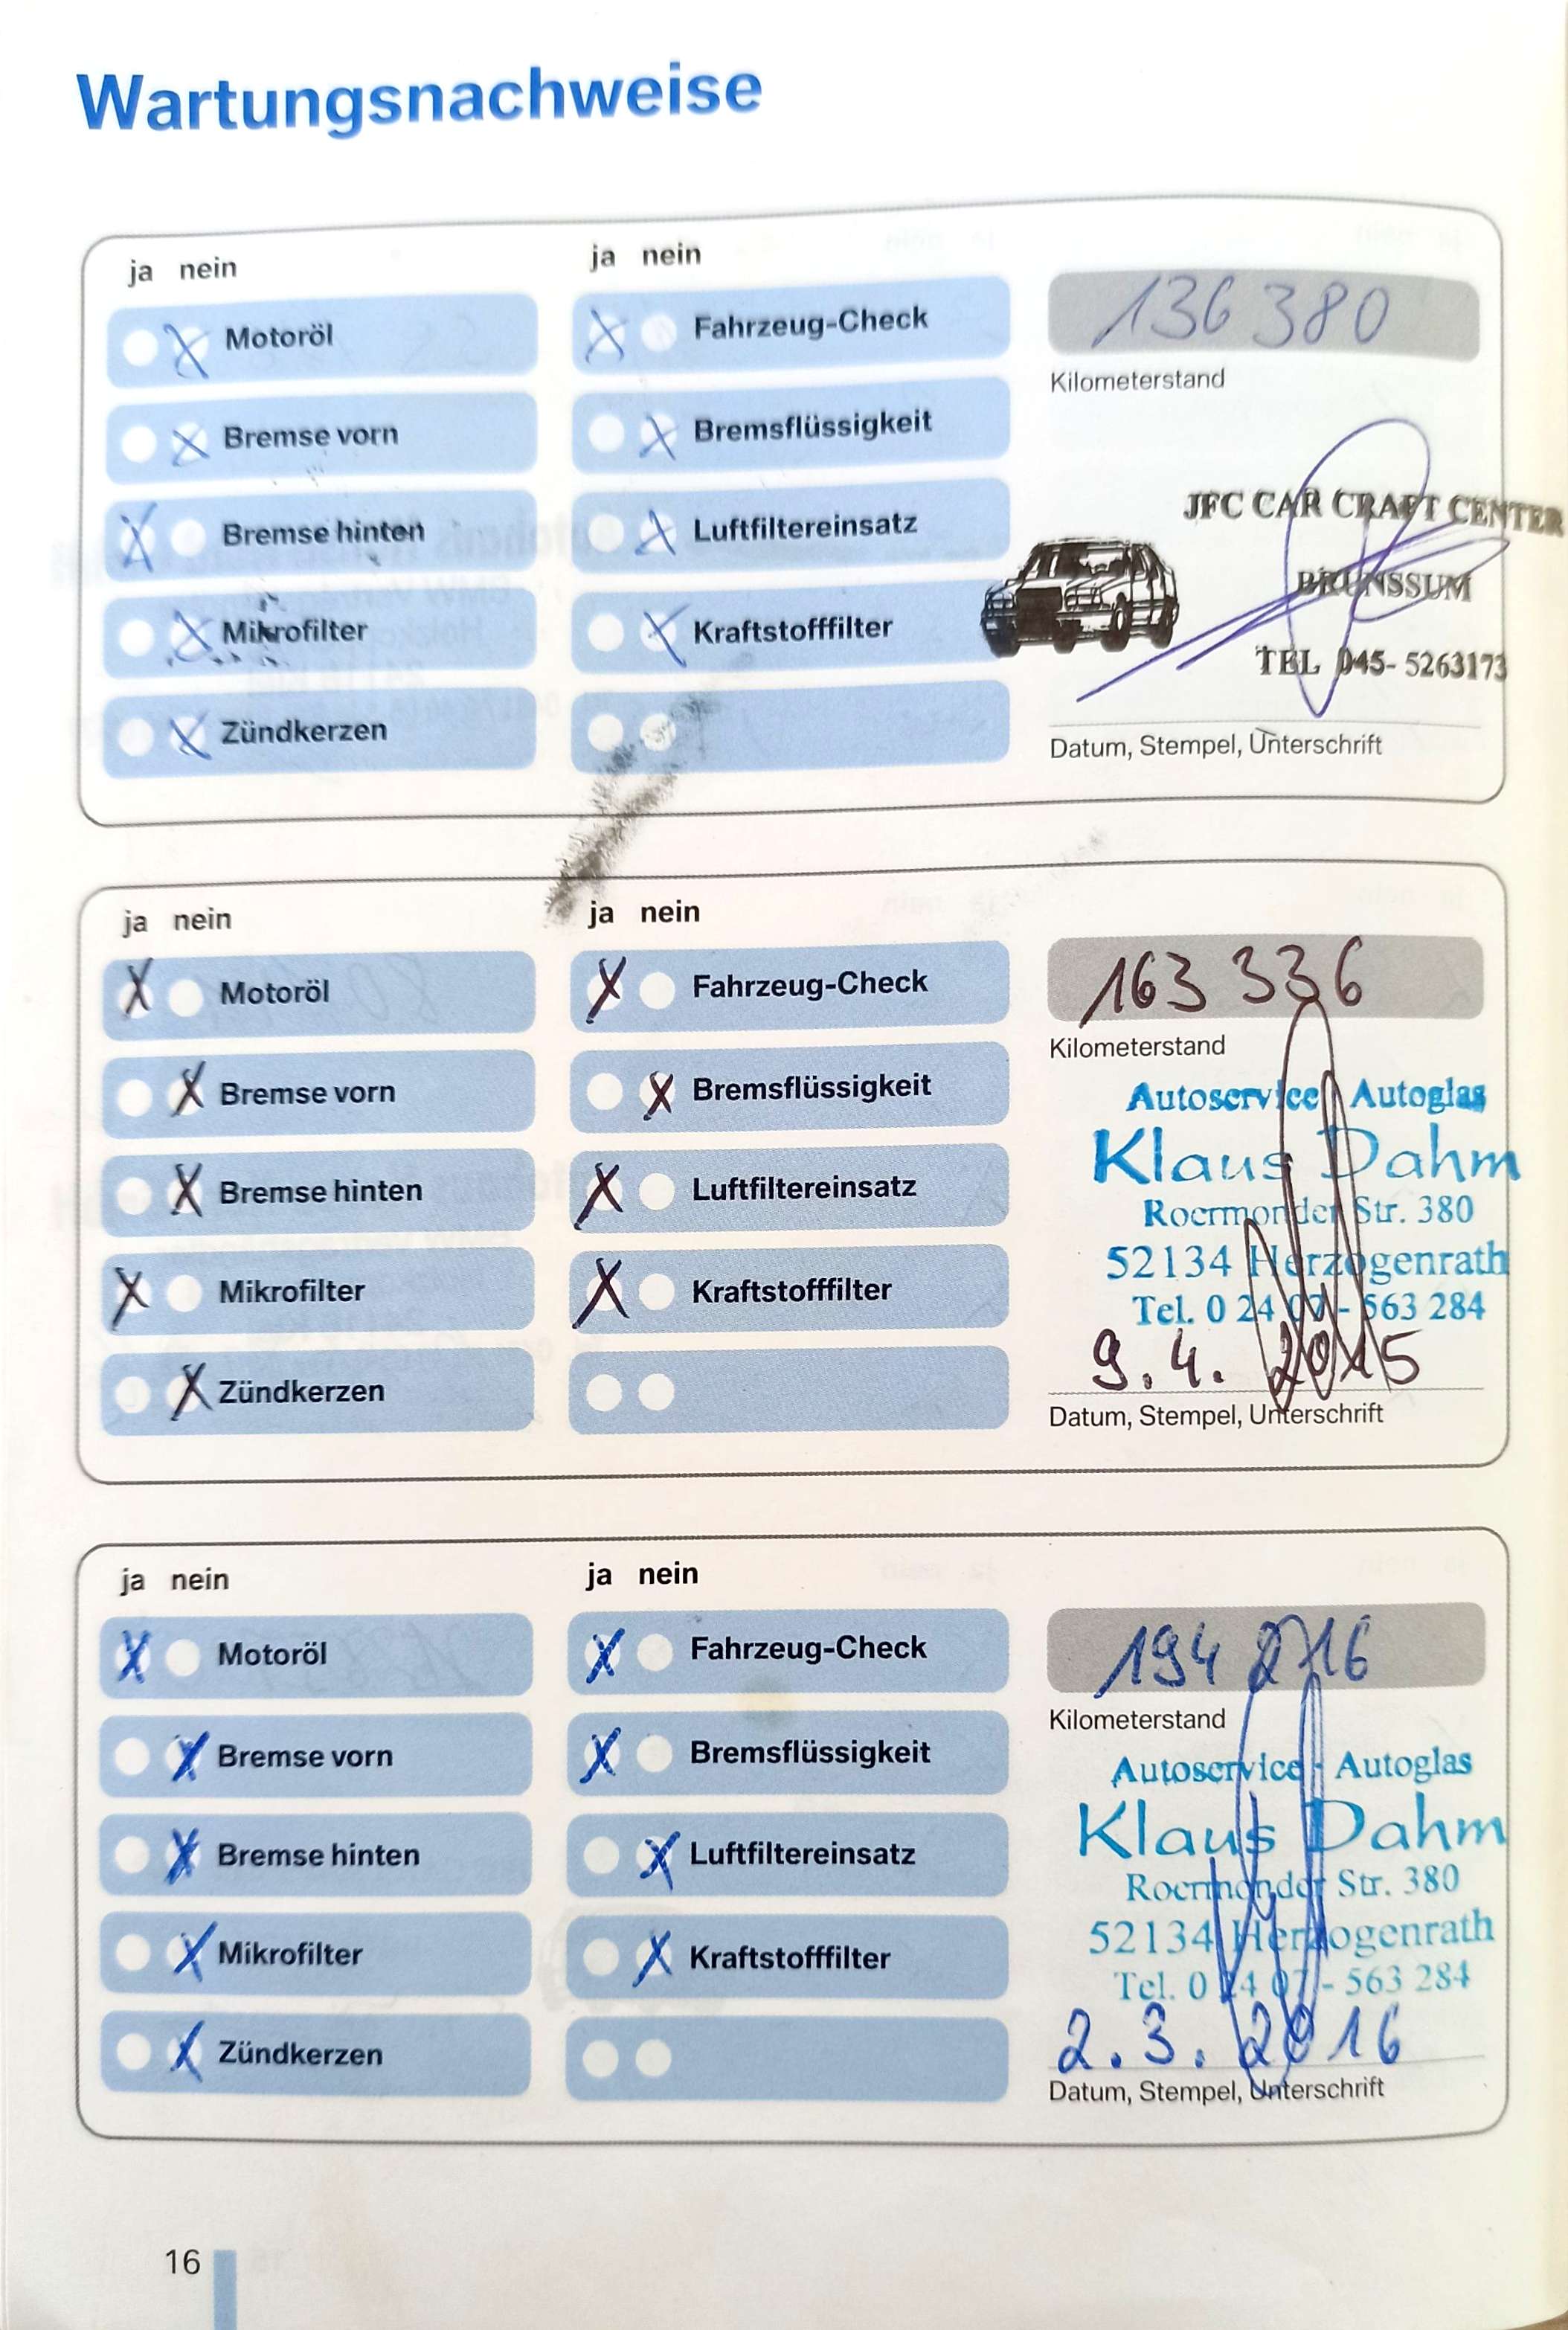 Wartungsnachweise
ja nein
ja nein
Motoröl
Fahrzeug-Check
136 380
Kilometerstand
Bremse vorn
Bremsflüssigkeit
Bremse hinten
Luftfiltereinsatz
JFC CAR CRAFT CENTER
BRUNSSUM
Mikrofilter
Kraftstofffilter
TEL 045- 5263173
Zündkerzen
Datum, Stempel, Unterschrift
ja nein
ja nein
Motoröl
Fahrzeug-Check
163 336
Kilometerstand
Bremse vorn
Bremsflüssigkeit
Autoservice - Autoglas
Klaus Dahm
Bremse hinten
Luftfiltereinsatz
Roermonder Str. 380
52134 Herzogenrath
Mikrofilter
Kraftstofffilter
Tel. 0 24 07 - 563 284
9.4. 2015
Zündkerzen
Datum, Stempel, Unterschrift
ja nein
ja nein
Motoröl
Fahrzeug-Check
194
Kilometerstand
Bremse vorn
Bremsflüssigkeit
Autoservice - Autoglas
Klaus Dahm
Bremse hinten
Luftfiltereinsatz
Roermonder Str. 380
52134 Herzogenrath
Mikrofilter
Kraftstofffilter
Tel. 0 24 07 - 563 284
2.3. 2016
Zündkerzen
Datum, Stempel, Unterschrift
16